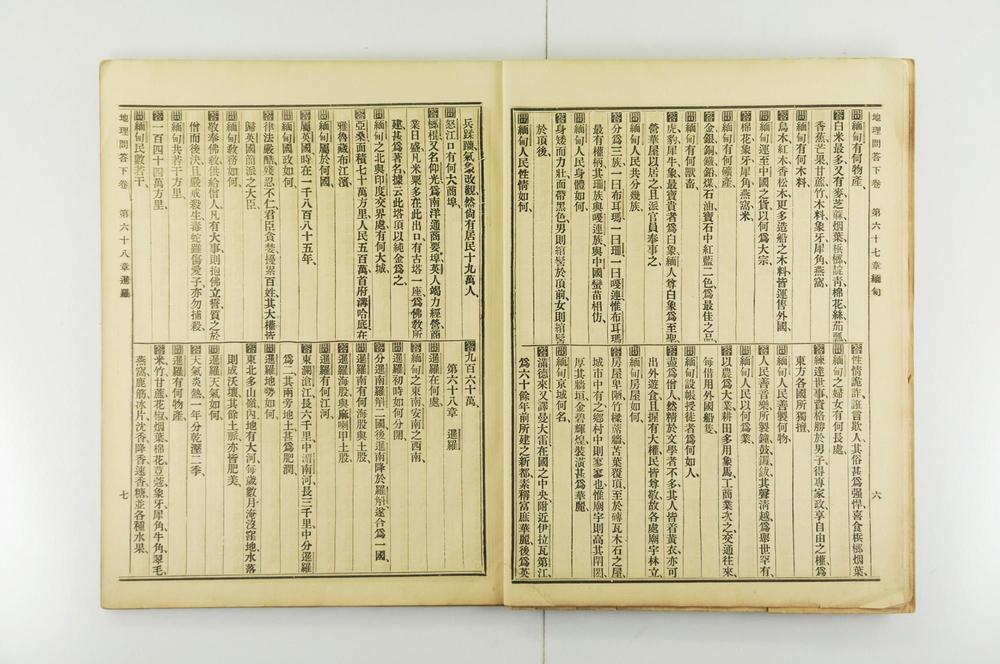 地理問答下卷　第六十七章緬甸
問緬甸有何物產、
答白米最多又有麥芝蔴烟葉梹榔靛靑棉花絲茄瓢
香蕉芒果甘蔗竹木料象牙犀角燕窩、
問緬甸有何木料、
答烏木紅木香松木更多造船之木料皆運售外國、
問緬甸運至中國之貨以何爲大宗、
答棉花象牙犀角燕窩米、
問緬甸有何礦產、
答金銀銅鐵鉛煤石油寶石中紅藍二色爲最佳之品、
問緬甸有何獸畜、
答虎豹犀牛象最貴者爲白象緬人尊白象爲至聖
營華屋以居之且派官員奉事之、
問緬甸人民共分幾族、
答分爲三族一曰布耳瑪一曰珊一曰嗄連惟布耳瑪
最有權柄其珊族與嗄連族與中國蠻苗相仿、
問緬甸人民身體如何、
答身矮而力壯面帶黑色男則綰髻於頂前女則綰髻
於頂後、
問緬甸人民性情如何、
答性情詭詐誑言欺人其俗甚爲强悍喜食梹榔烟葉、
問緬甸之婦女有何長處、
答練達世事資格勝於男子得專家政享自由之權爲
東方各國所獨擅、
問緬甸人民善製何物、
答人民善音樂所製鐘鼓鐃鈸其聲淸越爲舉世罕有、
問緬甸人民以何爲業、
答以農爲大業耕田多用象馬工商業次之交通往來、
每借用外國船隻、
問緬甸設帳授徒者爲何如人、
答盡爲僧人然精於文學者不多其人皆着黃衣亦可
出外遊食且握有大權民皆尊敬故各處廟宇林立、
問緬甸房屋如何、
答房屋卑陋竹樑蓆牆苫葉覆頂至於磚瓦木石之屋
城市中有之鄉村中則寥寥也惟廟宇則高其閈閎
厚其牆垣金碧輝煌裝潢甚爲華麗、
問緬甸京城何名、
答滿德來又譯曼大雷在國之中央附近伊拉瓦第江、
爲六十餘年前所建之新都素稱富庶華麗後爲英
六
兵蹂躪氣象改觀然尙有居民十九萬人、
問怒江口有何大商埠、
答榔棍又名仰光爲南洋通商要埠英人竭力經營商
業日盛凡米粟多在此出口有古塔一座爲佛敎所
建其爲著名據云此塔頂以純金爲之、
問緬甸之北與印度交界處有何大城、
答亞桑面積七十萬方里人民五百萬首府溝哈底在
雅魯藏布江濱、
問緬甸屬於何國、
答屬英國時在一千八百八十五年、
問緬甸國政如何、
答律法嚴酷殘忍不仁君臣貪婪擾累百姓其大權皆
歸英國簡派之大臣、
問緬甸敎務如何、
答敬奉佛敎供給僧人凡有大事則抱佛立誓質之於
僧而後決且嚴戒殺生毒蛇雖傷愛子亦勿捕殺、
問緬甸共若干方里、
答一百四十四萬方里、
問緬甸民數若干、
地理問答下卷　第六十八章暹羅
答九百六十萬、
第六十八章　暹羅
問暹羅在何處、
答緬甸之東南安南之西南、
問暹羅初時如何分開、
答分暹南羅斛二國後暹南降於羅斛遂合爲一國、
問暹羅南有何海股與土股、
答暹羅海股與麻喇甲土股、
問暹羅有何江河、
答東瀾滄江長六千里中湄南河長三千里中分暹羅
爲二其兩旁地土甚爲肥潤、
問暹羅地勢如何、
答東北多山嶺內地有大河每歲數月海沒窪地水落
則成沃壤其餘土脈亦皆肥美、
問暹羅天氣如何、
答天氣炎熱一年分乾溼二季、
問暹羅有何物產、
答米竹甘蔗花椒烟葉棉花荳蔻象牙犀角牛角翠毛
燕窩鹿筋冰片沈香降香速香糖並各種水果、
七